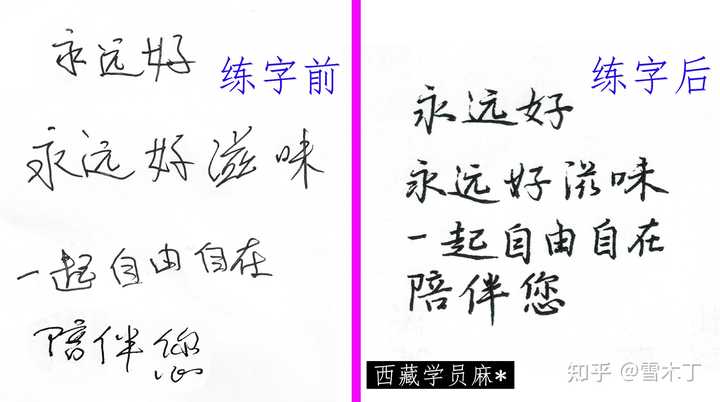 练字前
永远好
永远好滋味
一起自由自在
陪伴您
练字后
永远好
永远好滋味
一起自由自在
陪伴您
西藏学员麻*
知乎 @雪木丁